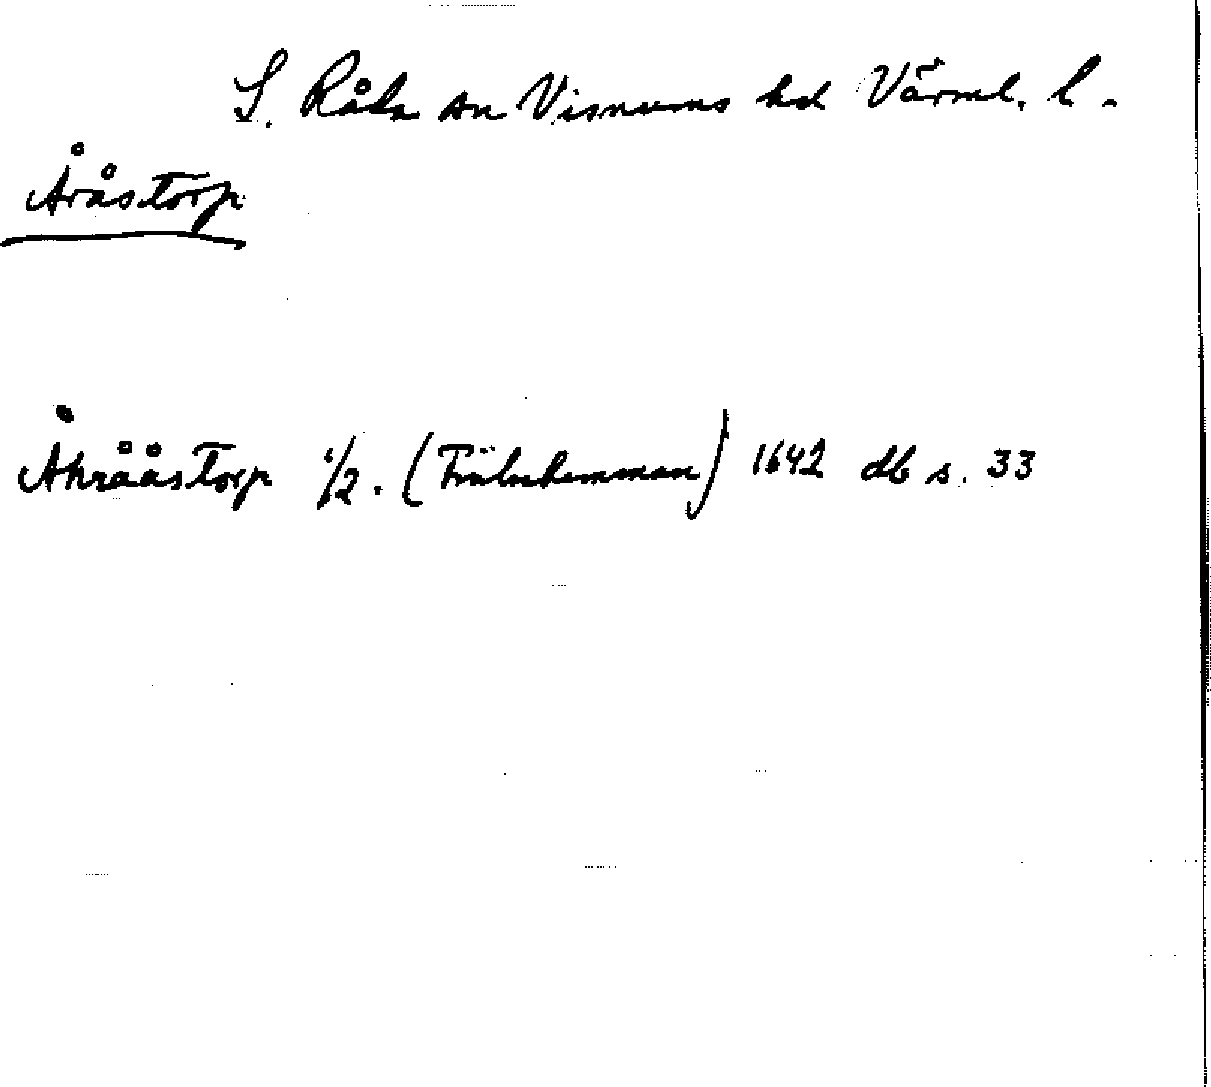 S. Råda sn Visnums hd Värml. l.
Åråstorp
Åhrååstorp 1/2. (Frälsehemman) 1642 db s. 33